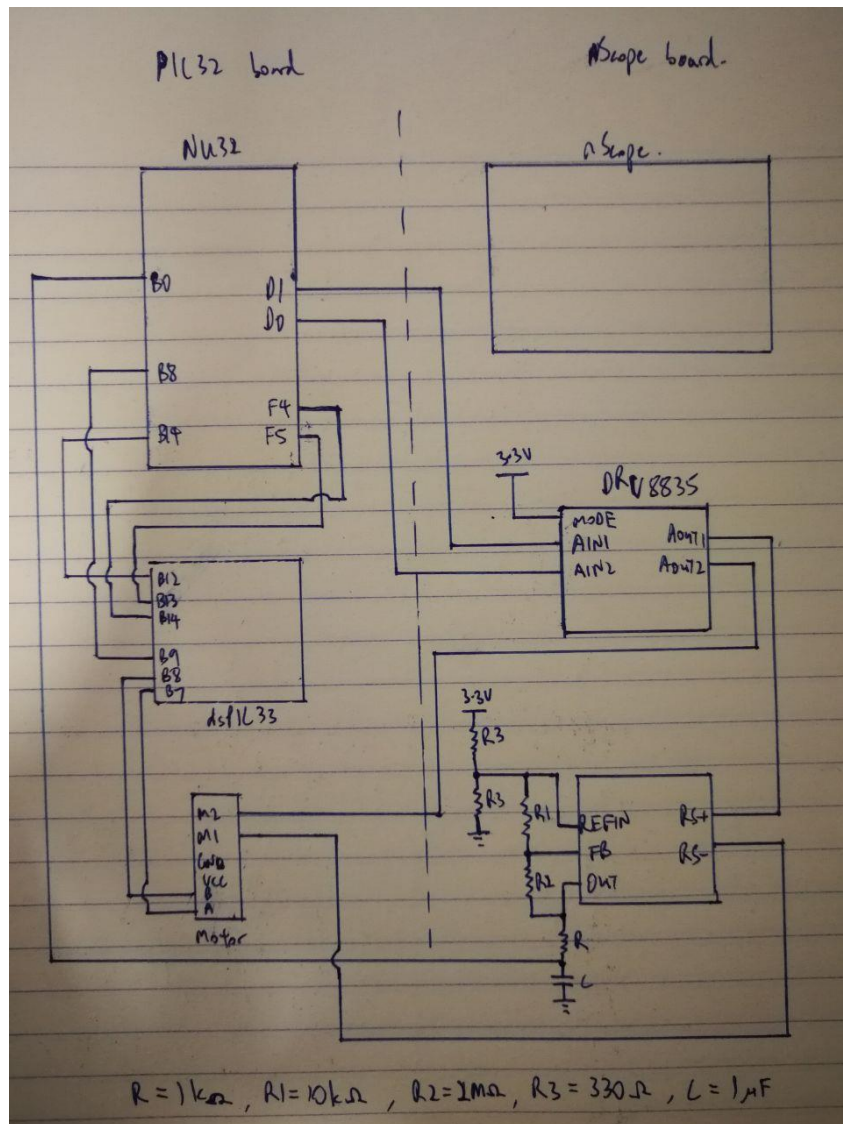 PIC32 board
nScope board.
NU32
nScope.
B0
D1
D0
B8
F4
B14
F5
3.3V
DRV8835
MODE
AIN1
AOUT1
AIN2
AOUT2
B12
B13
B14
B9
B8
B7
dsPIC33
3.3V
R3
R3
R1
REFIN
RS+
FB
RS-
R2
OUT
M2
M1
GND
VCC
B
A
Motor
R
C
R = 1kΩ, R1 = 10kΩ, R2 = 1MΩ, R3 = 330Ω, C = 1μF